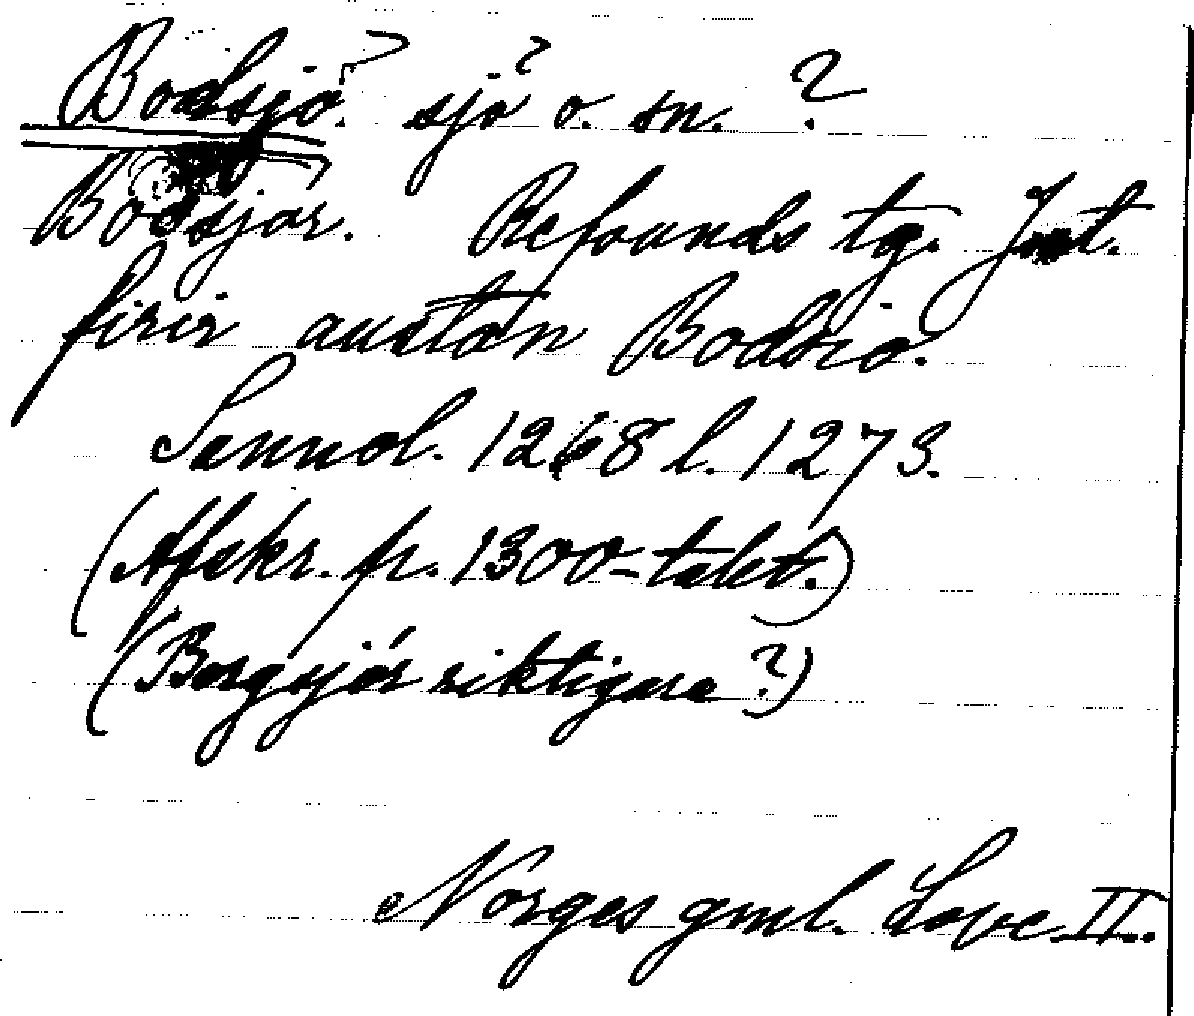 Bodsjö? sjö? o. sn. ?
Bodsjar. Refsunds tg. Jmt.
firir austan Bodsio.
Sannol. 1268 l. 1273.
(Afskr. fr. 1300-talet.)
(Borgsjór riktigare?)
Norges gml. Love II.